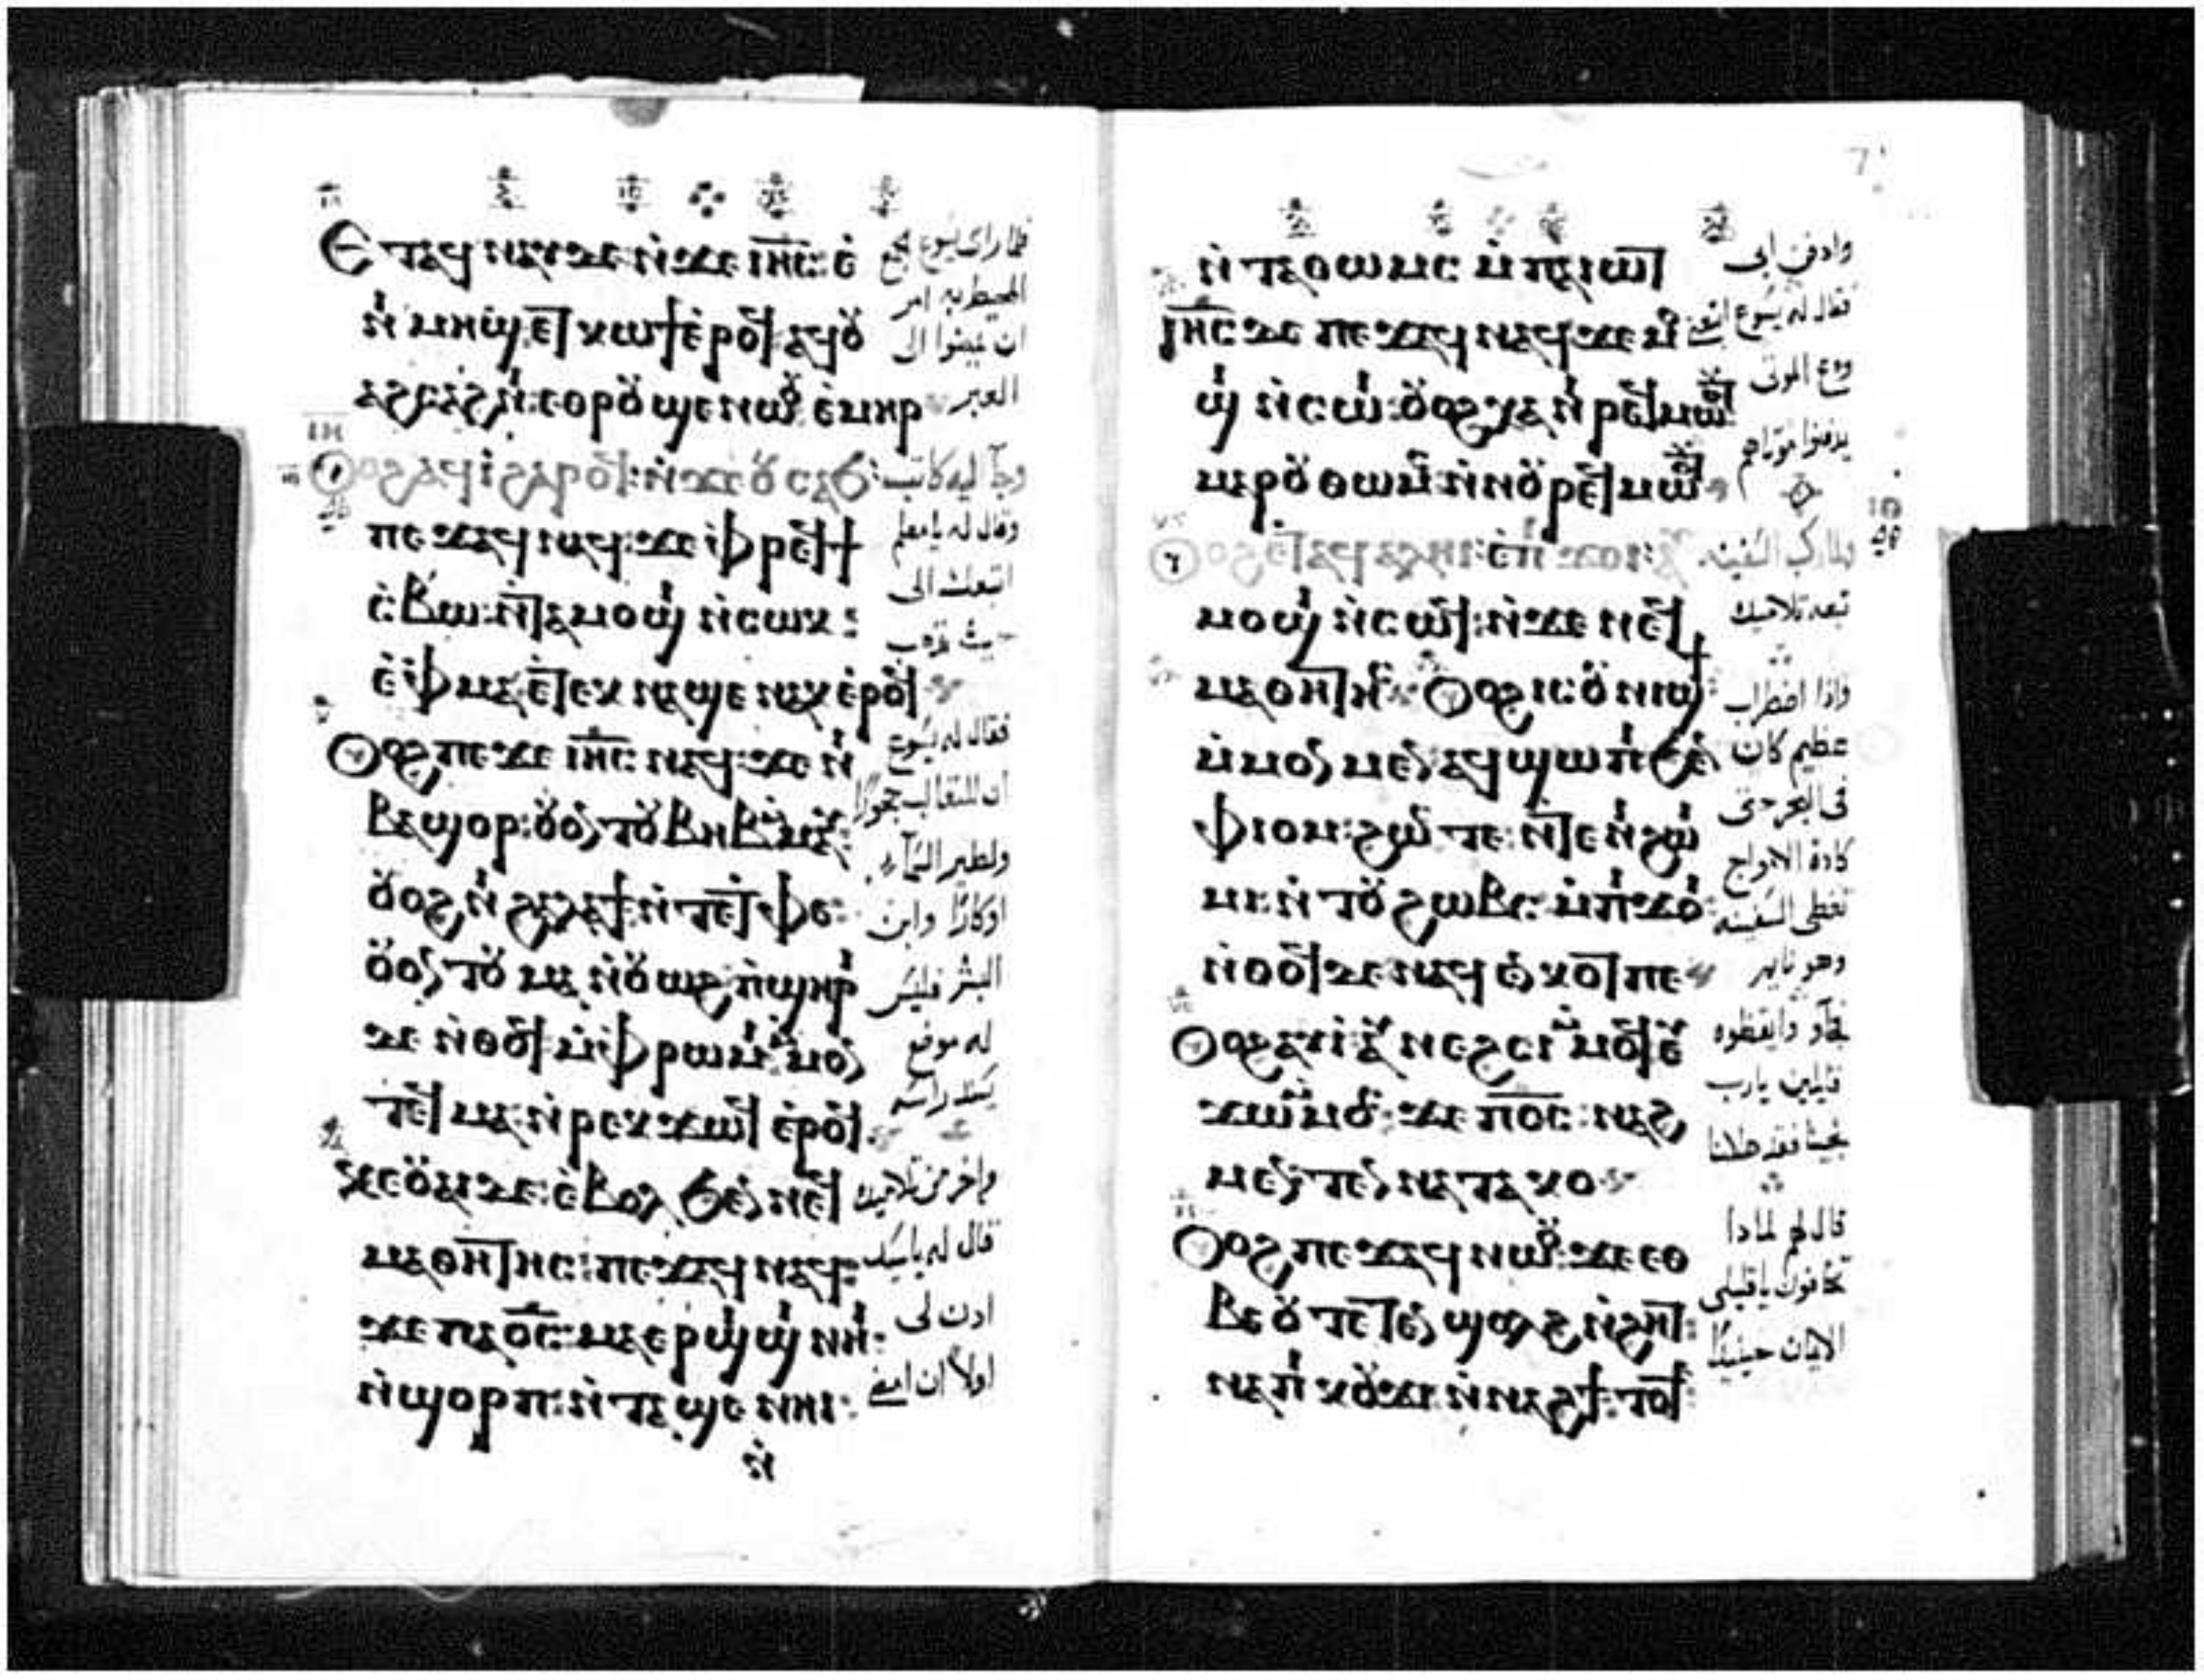 Ⲉⲧⲁϥ ⲛⲁⲩ ⲇⲉ ⲛ̀ϫⲉ ⲓⲏ̅ⲥ̅: ⲉ̀
ⲛⲓ ⲙⲏϣ ⲉⲧ ⲕⲱϯ ⲉ̀ⲣⲟϥ ⲁϥⲟⲩ
ⲁϩⲥⲁϩⲛⲓ: ⲉⲑⲣⲟⲩ ϣⲉⲛⲱⲟⲩ ⲉ̀ⲙⲏⲣ
Ⲟⲩⲟϩ ⲁϥⲓ̀ ϩⲁⲣⲟϥ: ⲛ̀ϫⲉ ⲟⲩ ⲥⲁϧ:
ⲡⲉϫⲁϥ ⲛⲁϥ: ϫⲉ ⲫⲣⲉϥϯ
ⲥ̀ⲃⲱ: ⲛ̀ⲧⲁⲙⲟϣⲓ ⲛ̀ⲥⲱⲕ:
ⲉ̀ⲫⲙⲁ ⲉ̀ⲧⲉⲕ ⲛⲁϣⲉ ⲛⲁⲕ ⲉ̀ⲣⲟϥ
Ⲟⲩⲟϩ ⲡⲉϫⲉ ⲓⲏ̅ⲥ̅ ⲛⲁϥ: ϫⲉ ⲛⲓ
ⲃⲁϣⲟⲣ: ⲟⲩⲟⲛⲧⲟⲩ ⲃⲏⲃ ⲙ̀ⲙⲁⲩ:
ⲟⲩⲟϩ ⲛⲓ ϩⲁⲗⲁϯ: ⲛ̀ⲧⲉ ⲧⲫⲉ:
ⲟⲩⲟⲛⲧⲟⲩ ⲙⲁ ⲛ̀ⲟⲩⲱϩ: ⲡ̀ϣⲏⲣⲓ
ⲇⲉ ⲛ̀ⲑⲟϥ ⲙ̀ⲫⲣⲱⲙⲓ: ⲙ̀ⲙⲟⲛ
ⲧⲉϥ ⲙⲁ: ⲛ̀ⲣⲉⲕ ϫⲱϥ ⲉ̀ⲣⲟϥ:
ⲕⲉⲟⲩⲁⲓ ⲇⲉ: ⲉ̀ⲃⲟⲗ ϧⲉⲛ ⲛⲉϥ
ⲙⲁⲑⲏⲧⲏⲥ: ⲡⲉϫⲁϥ ⲛⲁϥ:
ϫⲉ ⲡⲁϭ̅ⲥ̅: ⲙⲁⲉⲣϣⲓϣⲓ ⲛⲏⲓ:
ⲛ̀ϣⲟⲣⲡ: ⲛ̀ⲧⲁ ϣⲉ ⲛⲏⲓ:
ⲛ̀
فلما راى يسوع جمع
المحيط به امر
ان يمضوا الى
العبر
وجآ اليه كاتب
وقال له يا معلم
اتبعك الى
حيث تذهب
فقال له يسوع
ان للثعالب جحورًا
ولطير السمآء
اوكارًا وابن
البشر فليس
له موضع
يسند راسه
واخر من تلاميذه
قال له يا سيد
ادن لى
اولاً ان امضى
ⲛ̀ⲧⲁⲑⲱⲙⲥ ⲙ̀ⲡⲁⲓⲱⲧ
Ⲓⲏ̅ⲥ̅ ⲇⲉ ⲡⲉϫⲁϥ ⲛⲁϥ ϫⲉ ⲙⲟ
ϣⲓ ⲛ̀ⲥⲱⲓ: ⲟⲩⲟϩ ⲭⲁ ⲛⲓ ⲣⲉϥⲙⲱⲟⲩⲧ
ⲙⲁⲣⲟⲩ ⲑⲱⲙⲥ ⲛ̀ⲛⲟⲩ ⲣⲉϥⲙⲱⲟⲩⲧ
Ⲟⲩⲟϩ ⲉ̀ⲧⲁϥ ⲁⲗⲏⲓ: ⲉ̀ⲡ̀ϫⲟⲓ: ⲁⲩ
ⲙⲟϣⲓ ⲛ̀ⲥⲱϥ: ⲛ̀ϫⲉ ⲛⲉϥ
ⲙⲁⲑⲏⲧⲏⲥ Ⲟⲩⲟϩ ⲓⲥ ⲟⲩ ⲛⲓϣϯ
ⲙ̀ⲙⲟⲛⲙⲉⲛ ⲁϥϣⲱⲡⲓ ϧⲉⲛ
ⲫⲓⲟⲙ: ϩⲱⲥ ⲧⲉ: ⲛ̀ⲧⲉ ⲛⲓ ϩⲱⲓ
ⲙⲓ: ⲛ̀ⲧⲟⲩ ϩⲱⲃⲥ ⲙ̀ⲡⲓ ϫⲟⲓ:
ⲛ̀ⲑⲟϥ ⲇⲉ ⲛⲁϥ ⲉⲛⲕⲟⲧ ⲡⲉ
Ⲟⲩⲟϩ ⲁⲩⲓ̀ ⲁⲩ ⲛⲉϩⲥⲓ ⲙ̀ⲙⲟϥ ⲉⲩ
ϫⲱ ⲙ̀ⲙⲟⲥ: ϫⲉ ⲡϭ̅ⲥ̅: ⲛⲁϩ
ⲙⲉⲛ ⲧⲉⲛ ⲛⲁⲧⲁⲕⲟ
Ⲟⲩⲟϩ ⲡⲉϫⲁϥ ⲛⲱⲟⲩ: ϫⲉ ⲉⲑ
ⲃⲉ ⲟⲩ ⲧⲉⲧⲉⲛ ϣⲑⲟϩ ⲛ̀ϩⲏⲧ:
ⲛⲁⲡⲓ ⲕⲟⲩϫⲓ ⲛ̀ⲛⲁϩϯ: ⲧⲟⲧⲉ
وادفن ابى
فقال له يسوع اتبعنى
ودع الموتى
يدفنوا موتاهم
ولما ركب السفينه
تبعه تلاميذه
واذا اضطراب
عظيم كان
فى البحر حتى
كادة الامواج
تغطى السفينه
وهو نايم
فجآو وايقظوه
قايلين يا رب
نجينا فقد هلكنا
قال لهم لماذا
تخافون يا قليلى
الايمان حينيذًا